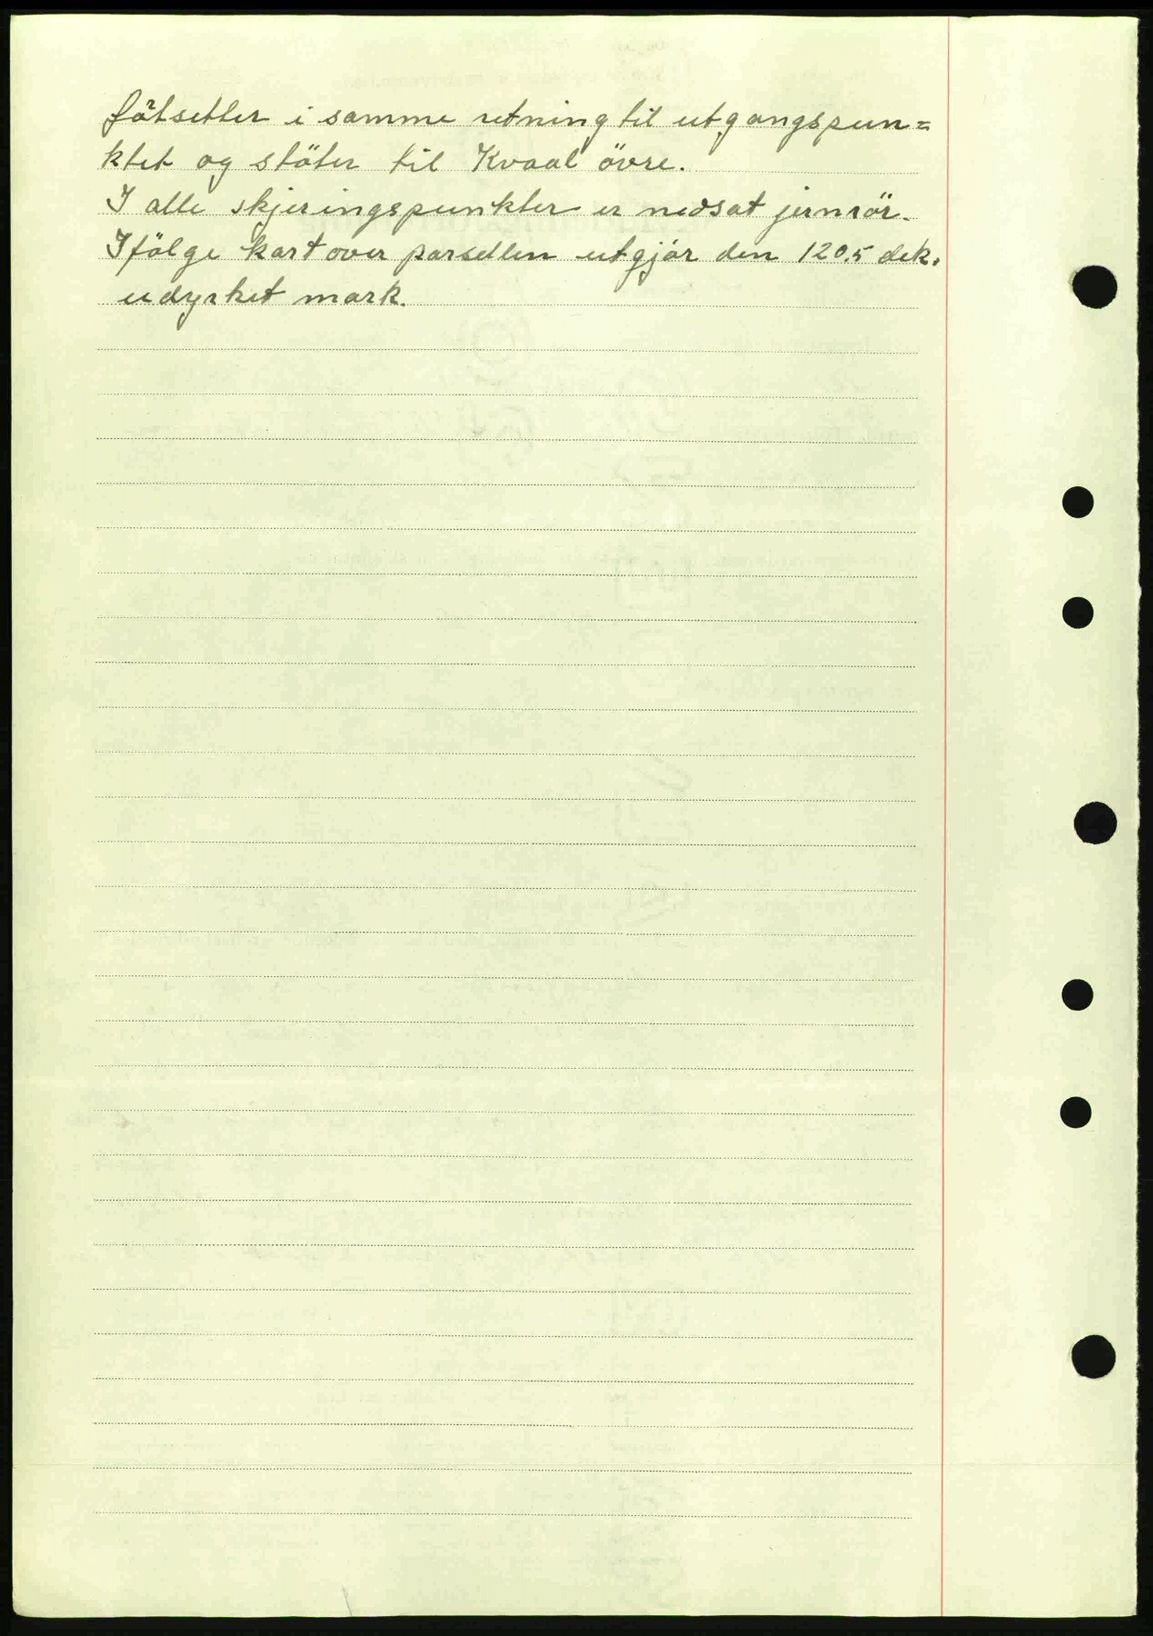 fötsetter i samme retning til utgangspun=
ktet og stöter til Kvaal övre.
I alle skjeringspunkter er nedsat jernrör.
Ifölge kart over parsellen utgjör den 120,5 dek.
udyrket mark.